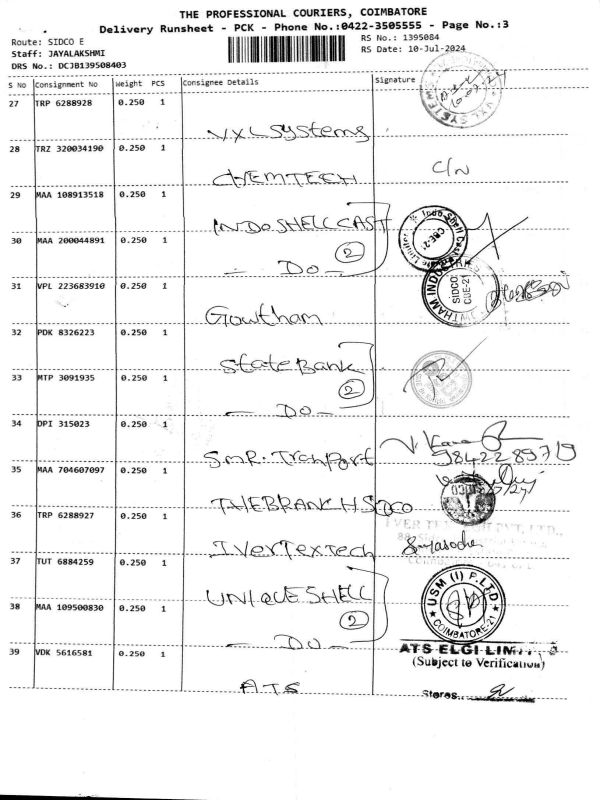 THE PROFESSIONAL COURIERS, COIMBATORE
Delivery Runsheet - PCK - Phone No.:0422-3505555 - Page No.:3
Route: SIDCO E
RS No.: 1395084
Staff: JAYALAKSHMI
RS Date: 10-Jul-2024
DRS No.: DCJB139508403
S No Consignment No Weight PCS Consignee Details Signature
27 TRP 6288928 0.250 1
VXL Systems
28 TRZ 320034190 0.250 1
CHEMTECH C/N
29 MAA 108913518 0.250 1
INDOSHELLCAST
30 MAA 200044891 0.250 1
2
- DO -
31 VPL 223683910 0.250 1
SIDCO
CBE-21
Gowtham
32 PDK 8326223 0.250 1
State Bank
33 MTP 3091935 0.250 1
2
- DO -
34 DPI 315023 0.250 1
SMR. Tranport
9842289719
35 MAA 704607097 0.250 1
36 TRP 6288927 0.250 1
IVertextech
37 TUT 6884259 0.250 1
UNIQUESHELL
USM (I) P.LTD
COIMBATORE-21
38 MAA 109500830 0.250 1
2
- DO -
39 VDK 5616581 0.250 1
ATS ELGI
(Subject to Verification)
ATS
Stores